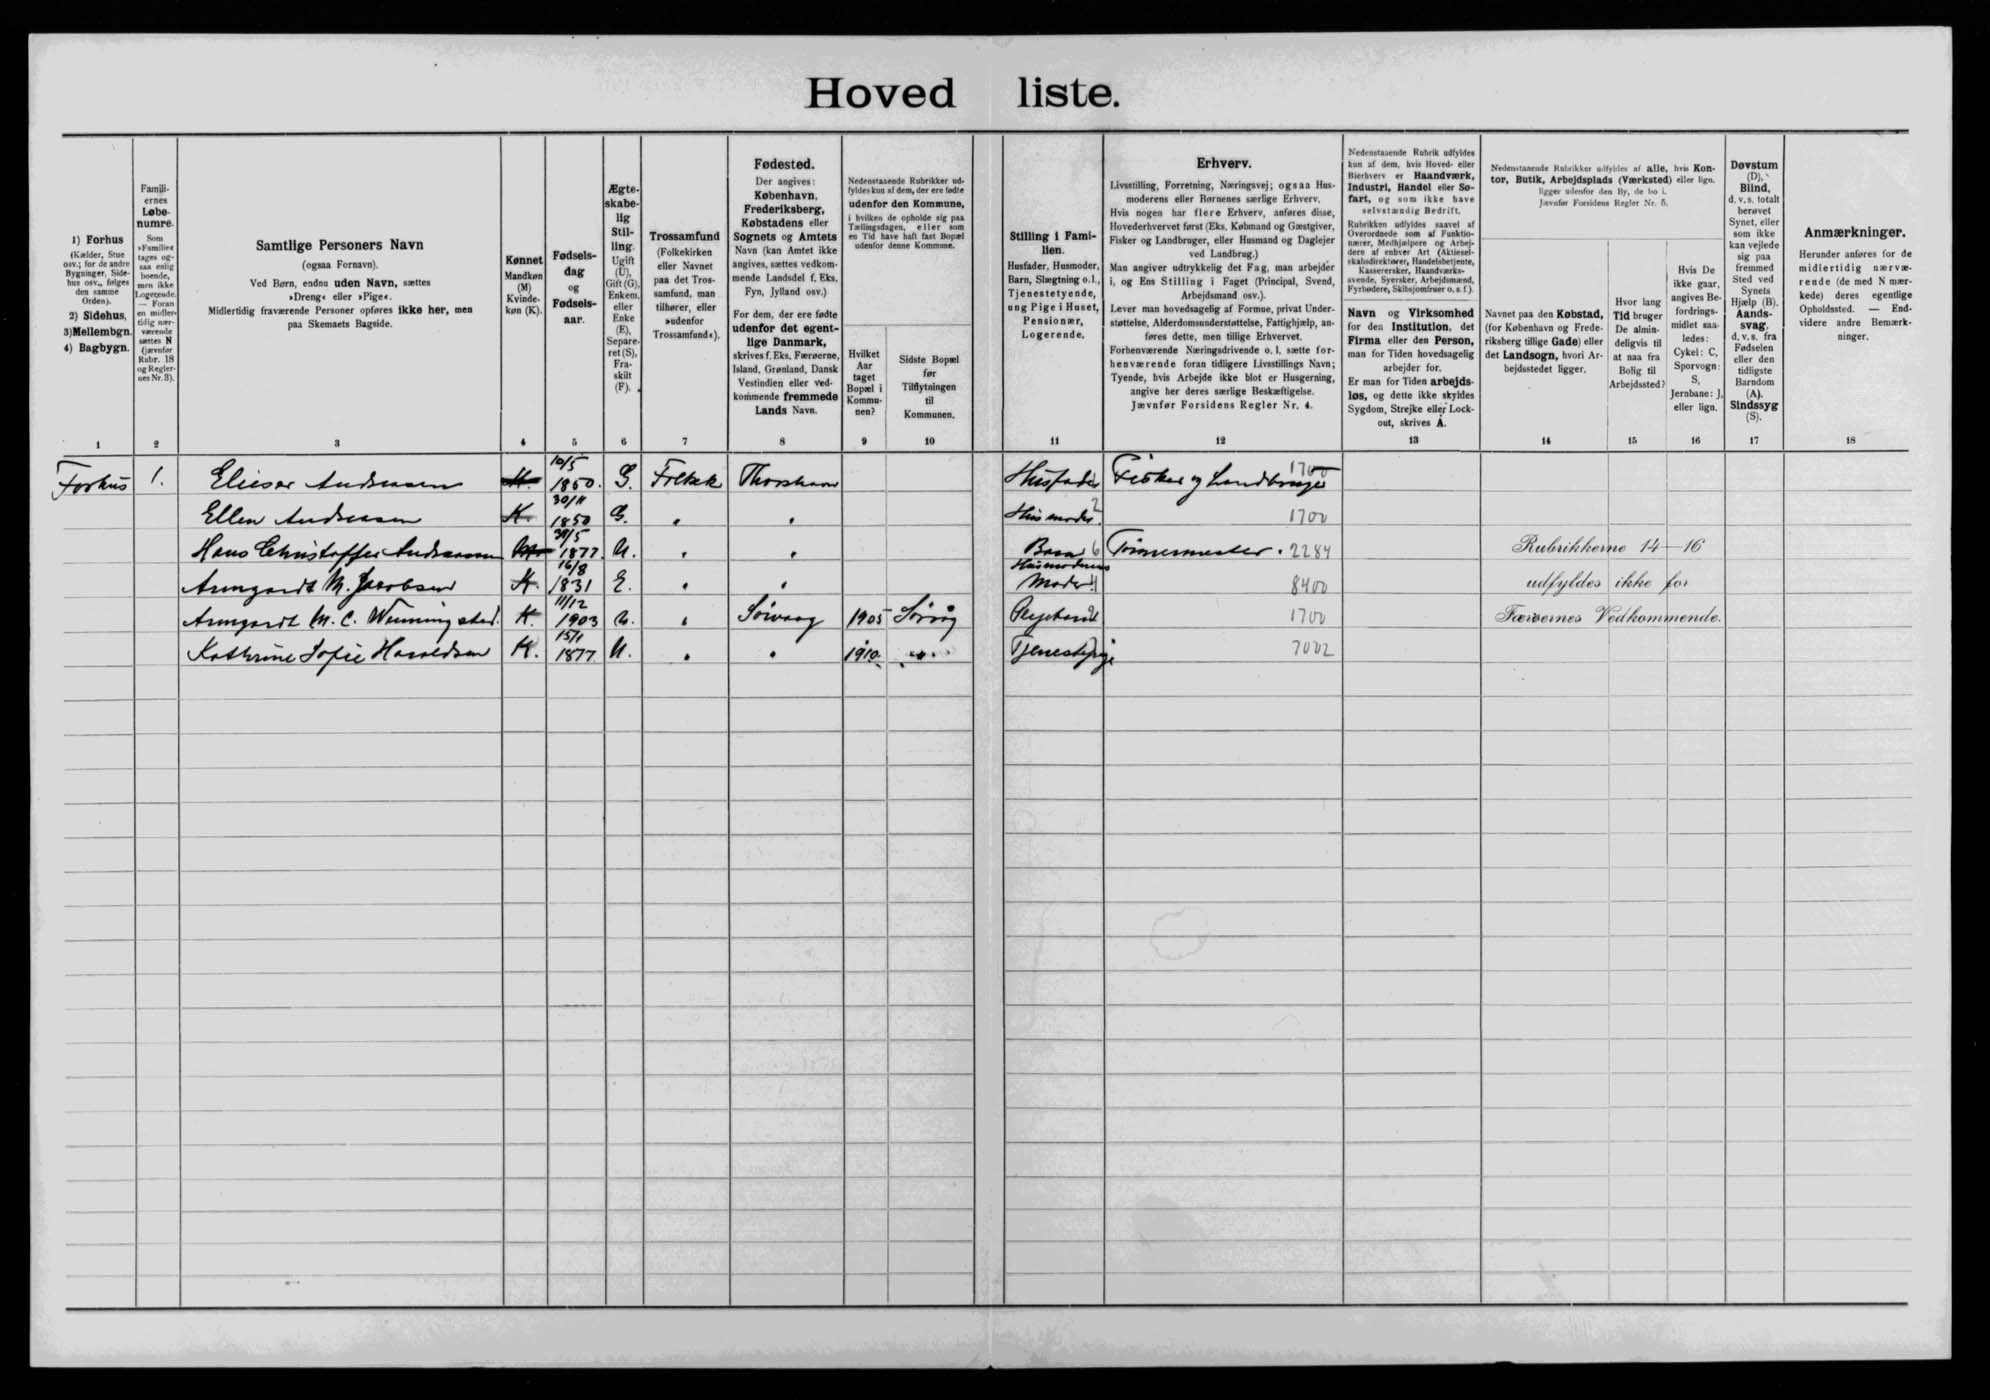 Hovedliste.
1) Forhus
(Kælder, Stue
osv.; for de andre
Bygninger, Side-
hus osv., følges
den samme
Orden).
2) Sidehus,
3) Mellembgn.
4) Bagbygn.
1
Famili-
ernes
Løbe-
numre.
Som
»Familie«
tages og-
saa enlig
boende,
men ikke
Logerende.
— Foran
en midler-
tidig nær-
værende
sættes N
(jævnfør
Rubr. 18
og Regler-
nes Nr. 3).
2
Samtlige Personers Navn
(ogsaa Fornavn).
Ved Børn, endnu uden Navn, sættes
»Dreng« eller »Pige«.
Midlertidig fraværende Personer opføres ikke her, men
paa Skemaets Bagside.
3
Kønnet
Mandkøn
(M)
Kvinde-
køn (K).
4
Fødsels-
dag
og
Fødsels-
aar.
5
Ægte-
skabe-
lig
Stil-
ling.
Ugift
(U),
Gift (G),
Enkem.
eller
Enke
(E),
Separe-
ret (S),
Fra-
skilt
(F).
6
Trossamfund
(Folkekirken
eller Navnet
paa det Tros-
samfund, man
tilhører, eller
»udenfor
Trossamfund«).
7
Fødested.
Der angives:
København,
Frederiksberg,
Købstadens eller
Sognets og Amtets
Navn (kan Amtet ikke
angives, sættes vedkom-
mende Landsdel f. Eks.
Fyn, Jylland osv.)
For dem, der ere fødte
udenfor det egent-
lige Danmark,
skrives f. Eks. Færøerne,
Island, Grønland, Dansk
Vestindien eller ved-
kommende fremmede
Lands Navn.
8
Nedenstaaende Rubrikker ud-
fyldes kun af dem, der ere fødte
udenfor den Kommune,
i hvilken de opholde sig paa
Tællingsdagen, eller som
en Tid have haft fast Bopæl
udenfor denne Kommune.
Hvilket
Aar
taget
Bopæl i
Kommu-
nen?
9
Sidste Bopæl
før
Tilflytningen
til
Kommunen.
10
Stilling i Fami-
lien.
Husfader, Husmoder,
Barn, Slægtning o.l.,
Tjenestetyende,
ung Pige i Huset,
Pensionær,
Logerende.
11
Erhverv.
Livsstilling, Forretning, Næringsvej; ogsaa Hus-
moderens eller Børnenes særlige Erhverv.
Hvis nogen har flere Erhverv, anføres disse,
Hovederhvervet først (Eks. Købmand og Gæstgiver,
Fisker og Landbruger, eller Husmand og Daglejer
ved Landbrug.)
Man angiver udtrykkelig det Fag, man arbejder
i, og Ens Stilling i Faget (Principal, Svend,
Arbejdsmand osv.).
Lever man hovedsagelig af Formue, privat Under-
støttelse, Alderdomsunderstøttelse, Fattighjælp, an-
føres dette, men tillige Erhvervet.
Forhenværende Næringsdrivende o. l. sætte for-
henværende foran tidligere Livsstillings Navn;
Tyende, hvis Arbejde ikke blot er Husgerning,
angive her deres særlige Beskæftigelse.
Jævnfør Forsidens Regler Nr. 4.
12
Nedenstaaende Rubrik udfyldes
kun af dem, hvis Hoved- eller
Bierhverv er Haandværk,
Industri, Handel eller Sø-
fart, og som ikke have
selvstændig Bedrift.
Rubrikken udfyldes saavel af
Overordnede som af Funktio-
nærer, Medhjælpere og Arbej-
dere af enhver Art (Aktiesel-
skabsdirektører, Handelsbetjente,
Kassererske, Haandværks-
svende, Syersker, Arbejdsmænd,
Fyrbødere, Skibsjomfruer o. s. f.).
Navn og Virksomhed
for den Institution, det
Firma eller den Person,
man for Tiden hovedsagelig
arbejder for.
Er man for Tiden arbejds-
løs, og dette ikke skyldes
Sygdom, Strejke eller Lock-
out, skrives A.
13
Nedenstaaende Rubrikker udfyldes af alle, hvis Kon-
tor, Butik, Arbejdsplads (Værksted) eller lign.
ligger udenfor den By, de bo i.
Jævnfør Forsidens Regler Nr. 5.
Navnet paa den Købstad,
(for København og Frede-
riksberg tillige Gade) eller
det Landsogn, hvori Ar-
bejdsstedet ligger.
14
Hvor lang
Tid bruger
De almin-
deligvis til
at naa fra
Bolig til
Arbejdssted?
15
Hvis De
ikke gaar,
angives Be-
fordrings-
midlet saa-
ledes:
Cykel: C,
Sporvogn:
S,
Jernbane: J,
eller lign.
16
Døvstum
(D),
Blind,
d. v. s. totalt
berøvet
Synet, eller
som ikke
kan vejlede
sig paa
fremmed
Sted ved
Synets
Hjælp (B).
Aands-
svag,
d. v. s. fra
Fødselen
eller den
tidligste
Barndom
(A).
Sindssyg
(S).
17
Anmærkninger.
Herunder anføres for de
midlertidig nærvæ-
rende (de med N mær-
kede) deres egentlige
Opholdssted. — End-
videre andre Bemærk-
ninger.
18
Forhus 1. Elieser Andreasen M. 10/5 1850. G. Folkek Thorshavn Husfader Fisker og Landbruger 1700
Ellen Andreasen K. 30/11 1850 G. " " Husmoder 2 1700
Hans Christoffer Andreasen M 1877. U. " " Barn 6 Tømmermester. 2284 Rubrikkerne 14—16
Armgardt M. Jacobsen K. 16/8 1831 E. " " Husmoderens Moder 8400 udfyldes ikke for
Armgardt M. C. Wenningsted. K. 11/12 1903 U. " Sørvaag 1905 Sørvåg Plejebarn 1700 Færøernes Vedkommende.
Kathrine Sofie Haraldsen K. 15/1 1877 U. " " 1910. " Tjenestepige 7002